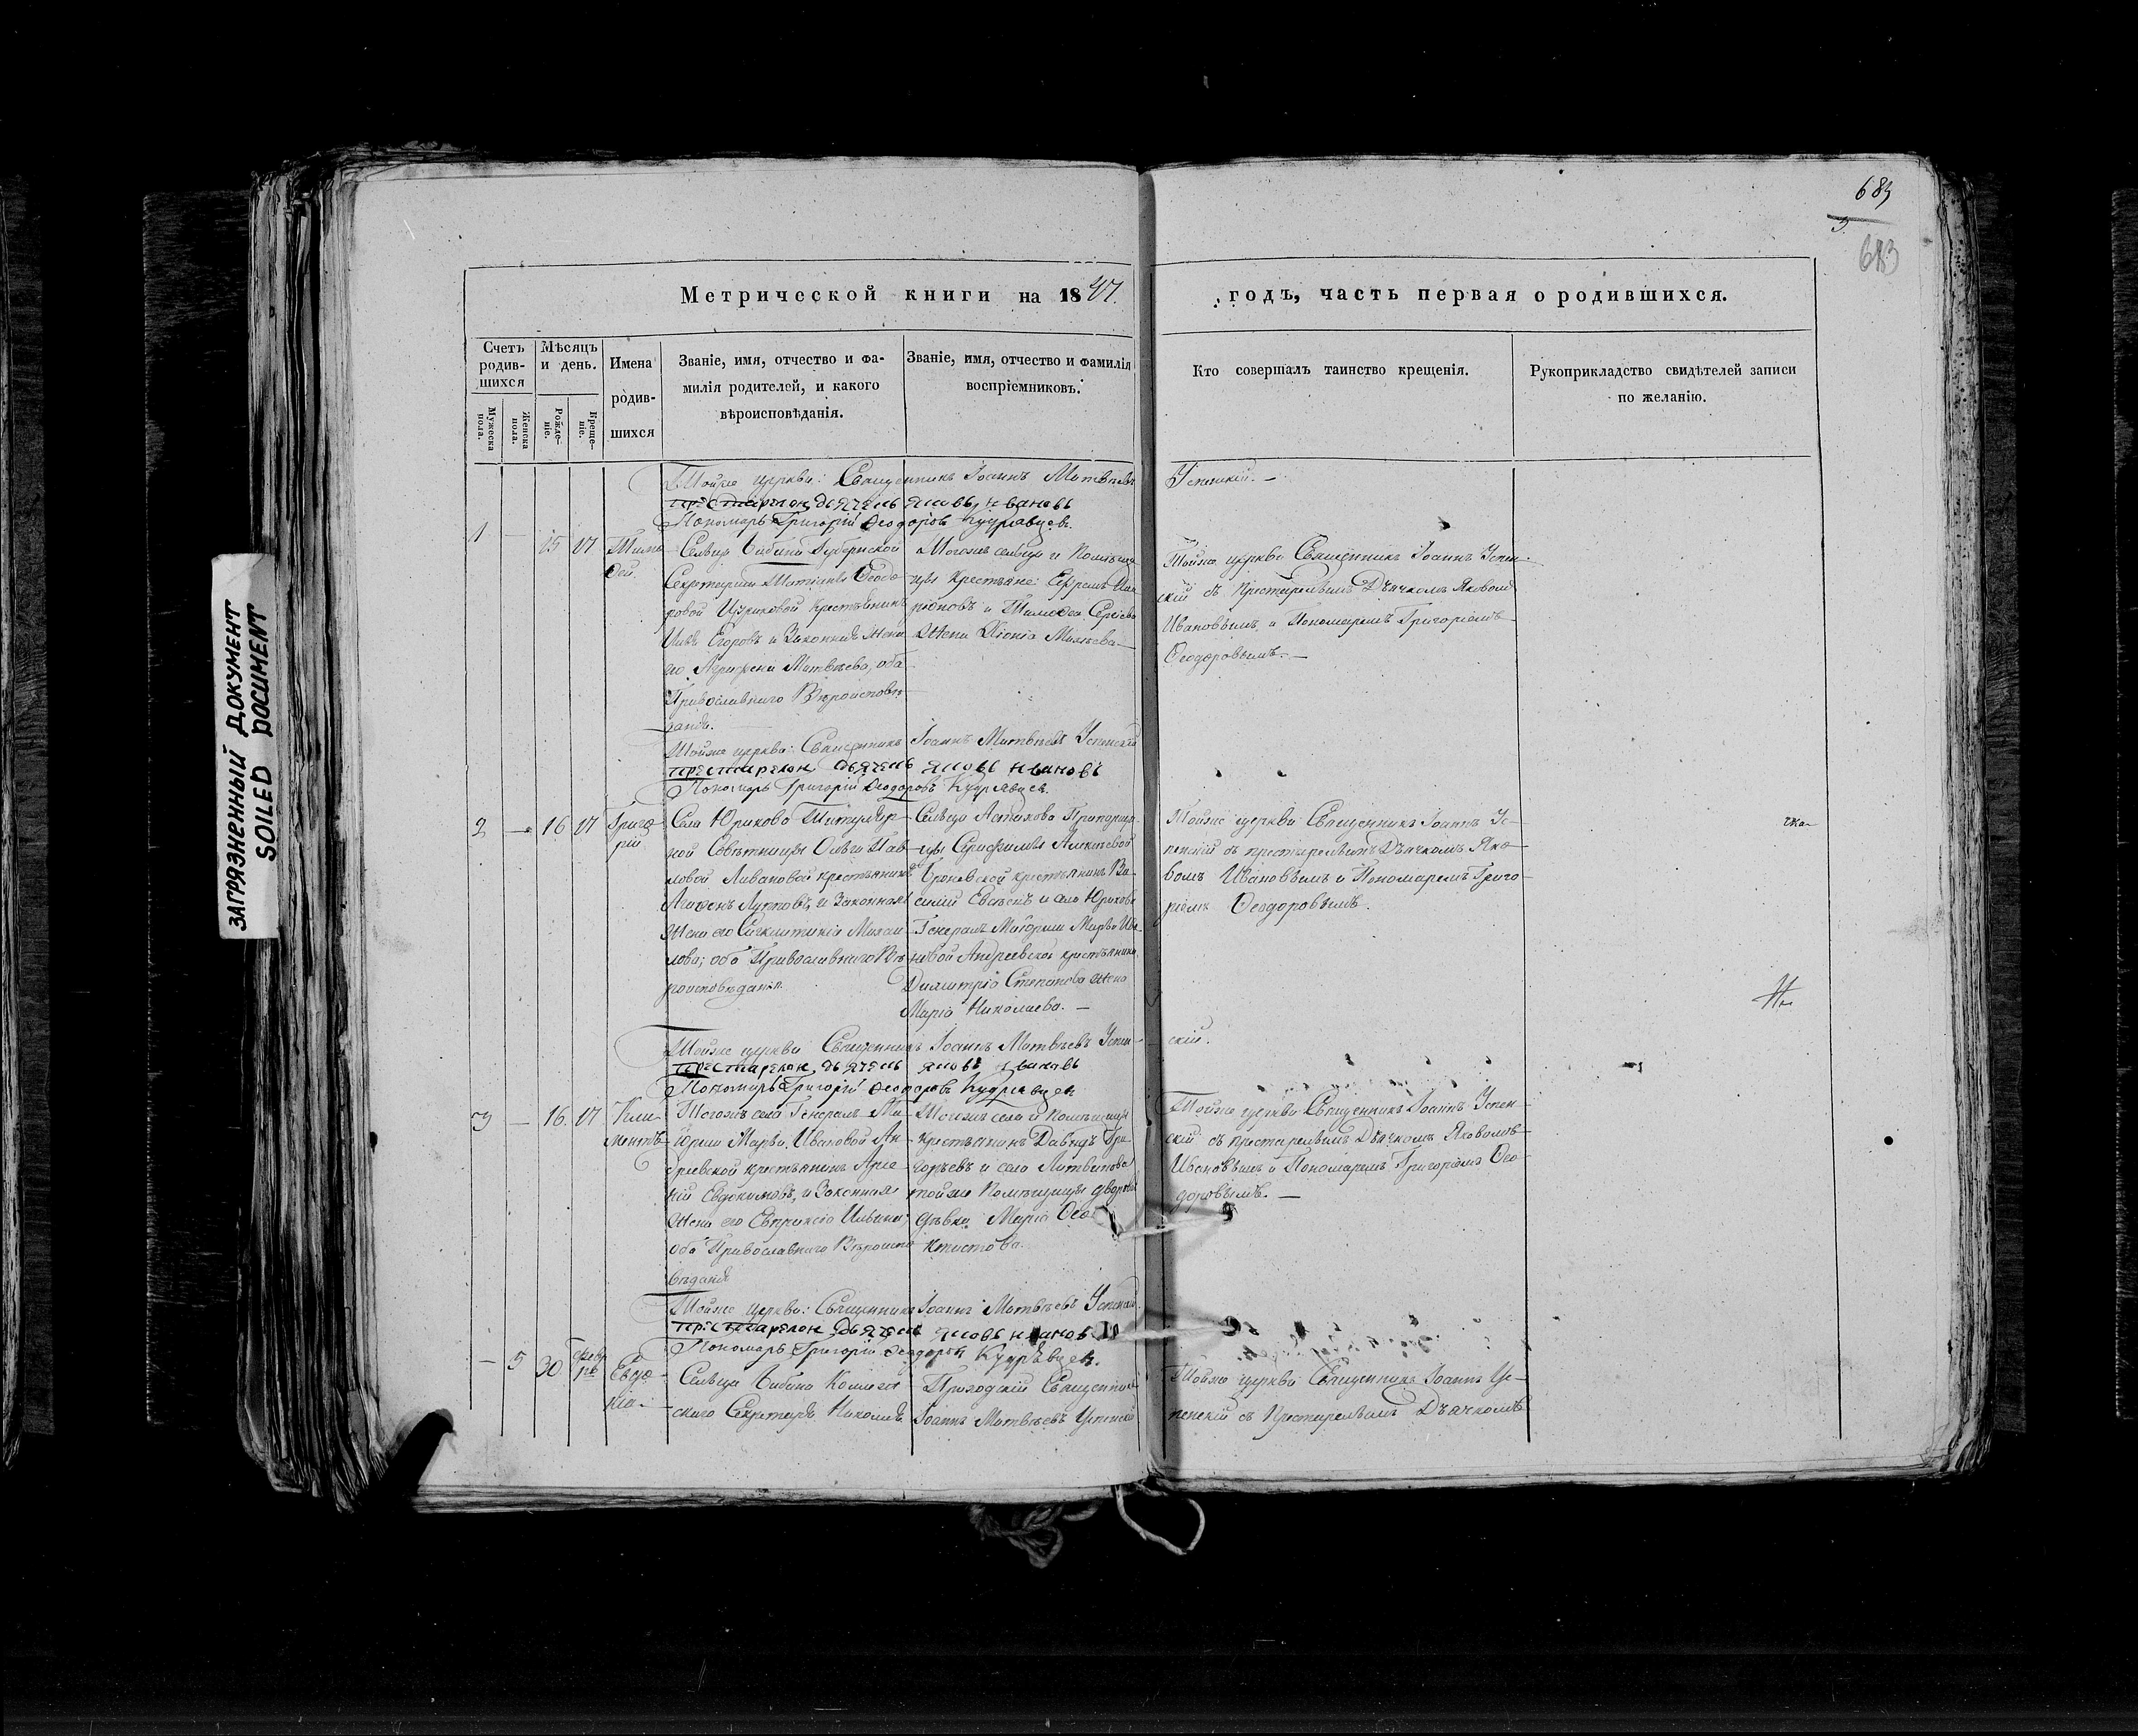 689
3
683
ЗАГРЯЗНЕННЫЙ ДОКУМЕНТ
SOILED DOCUMENT
Метрической книги на 1847. годъ, часть первая о родившихся.
Счетъ родив-шихся
Мужеска пола.
Женска пола.
Мѣсяцъ и день.
Рожде-ніе.
Креще-ніе.
Имена родив-шихся
Званіе, имя, отчество и фа-
милія родителей, и какого
вѣроисповѣданія.
Званіе, имя, отчество и фамилія
воспріемниковъ.
Кто совершалъ таинство крещенія.
Рукоприкладство свидѣтелей записи
по желанію.
Тойже церкви: Священникъ Іоаннъ Матвѣевъ Успенскій.
престарелои дьячекъ яковъ ивановъ
Пономарь Григорій Ѳеодоровъ Кудрявцевъ.
1 — 15 17 Тимо-
ѳей.
Сельца Бибина Губернской
Секретарши Ѳеодо-
ровой крестьянинъ
Егоровъ и Законная Жена
его Матвѣева, оба
Православнаго Вѣроисповѣ-
данія.
Тогожъ сельца и Помѣщи-
цы Крестьяне: Ефремъ Ила-
ріоновъ и Тимоѳея Сергѣева
Жена Михѣева
Тойже церкви Священникъ Іоаннъ Успен-
скій съ Престарелымъ Дьячкомъ Яковомъ
Ивановымъ и Пономаремъ Григоріемъ
Ѳеодоровымъ. —
Тойже церкви: Священникъ Іоаннъ Матвѣевъ Успенскій
престарелои дьячекъ яковъ ивановъ
Пономарь Григорій Ѳеодоровъ Кудрявцевъ.
2 — 16 17 Григо-
рій
Села Юрикова Титуляр-
ной Совѣтницы Ольги Пав-
ловой Ливановой крестьянинъ
и Законная
Жена его Миха-
лова; оба Православнаго Вѣ-
роисповѣданія.
Сельца Прапорщи-
цы Серафимы Алексѣевой
Броневской крестьянинъ Ва-
силій и села Юрикова
Генералъ Маіорши Марьи Ива-
новой Андреевской крестьянина
Димитрія Степанова жена
Марія Николаева. —
Тойже церкви Священникъ Іоаннъ Ус-
пенскій съ престарелымъ Дьячкомъ Яко-
вомъ Ивановымъ и Пономаремъ Григо-
ріемъ Ѳеодоровымъ.
Тойже церкви Священникъ Іоаннъ Матвѣевъ Успен-
скій.
престарелои дьячекъ яковъ ивановъ
Пономарь Григорій Ѳеодоровъ Кудрявцевъ
3 — 16. 17 Кли-
ментъ
Тогожъ села Генералъ Ма-
іорши Марьи Ивановой Ан-
дреевской крестьянинъ Арсе-
ній Евдокимовъ, и Законная
Жена его Евпраксія Ильина;
оба Православнаго Вѣроиспо-
вѣданія
Тогожъ села и Помѣщицы
Крестьянинъ Давидъ Гри-
горьевъ и села Литвинова
тойже Помѣщицы дворовая
дѣвка Марія Ѳео-
ктистова.
Тойже церкви Священникъ Іоаннъ Успен-
скій съ престарелымъ Дьячкомъ Яковомъ
Ивановымъ и Пономаремъ Григоріемъ Ѳео-
доровымъ. —
Тойже церкви: Священникъ Іоаннъ Матвѣевъ Успенскій.
престарелои дьячекъ яковъ ивановъ
Пономарь Григорій Ѳеодоровъ Кудрявцевъ.
— 5 30. Евдо-
кія.
Сельца Бибина Коллеж-
скаго Секретаря Николая
Приходскій Священникъ
Іоаннъ Матвѣевъ Успенскій
Тойже церкви Священникъ Іоаннъ Ус-
пенскій съ Престарелымъ Дьячкомъ